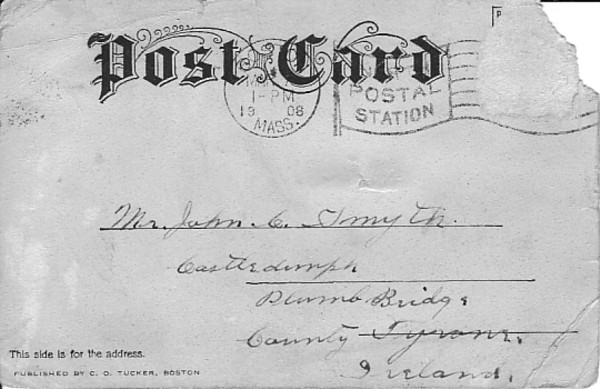 P
Post Card
1-PM
19 08
MASS.
POSTAL
STATION
Mr. John C. Smyth.
Castledamph
Plumb Bridge
County Tyrone,
Ireland.
This side is for the address.
PUBLISHED BY C. O. TUCKER, BOSTON